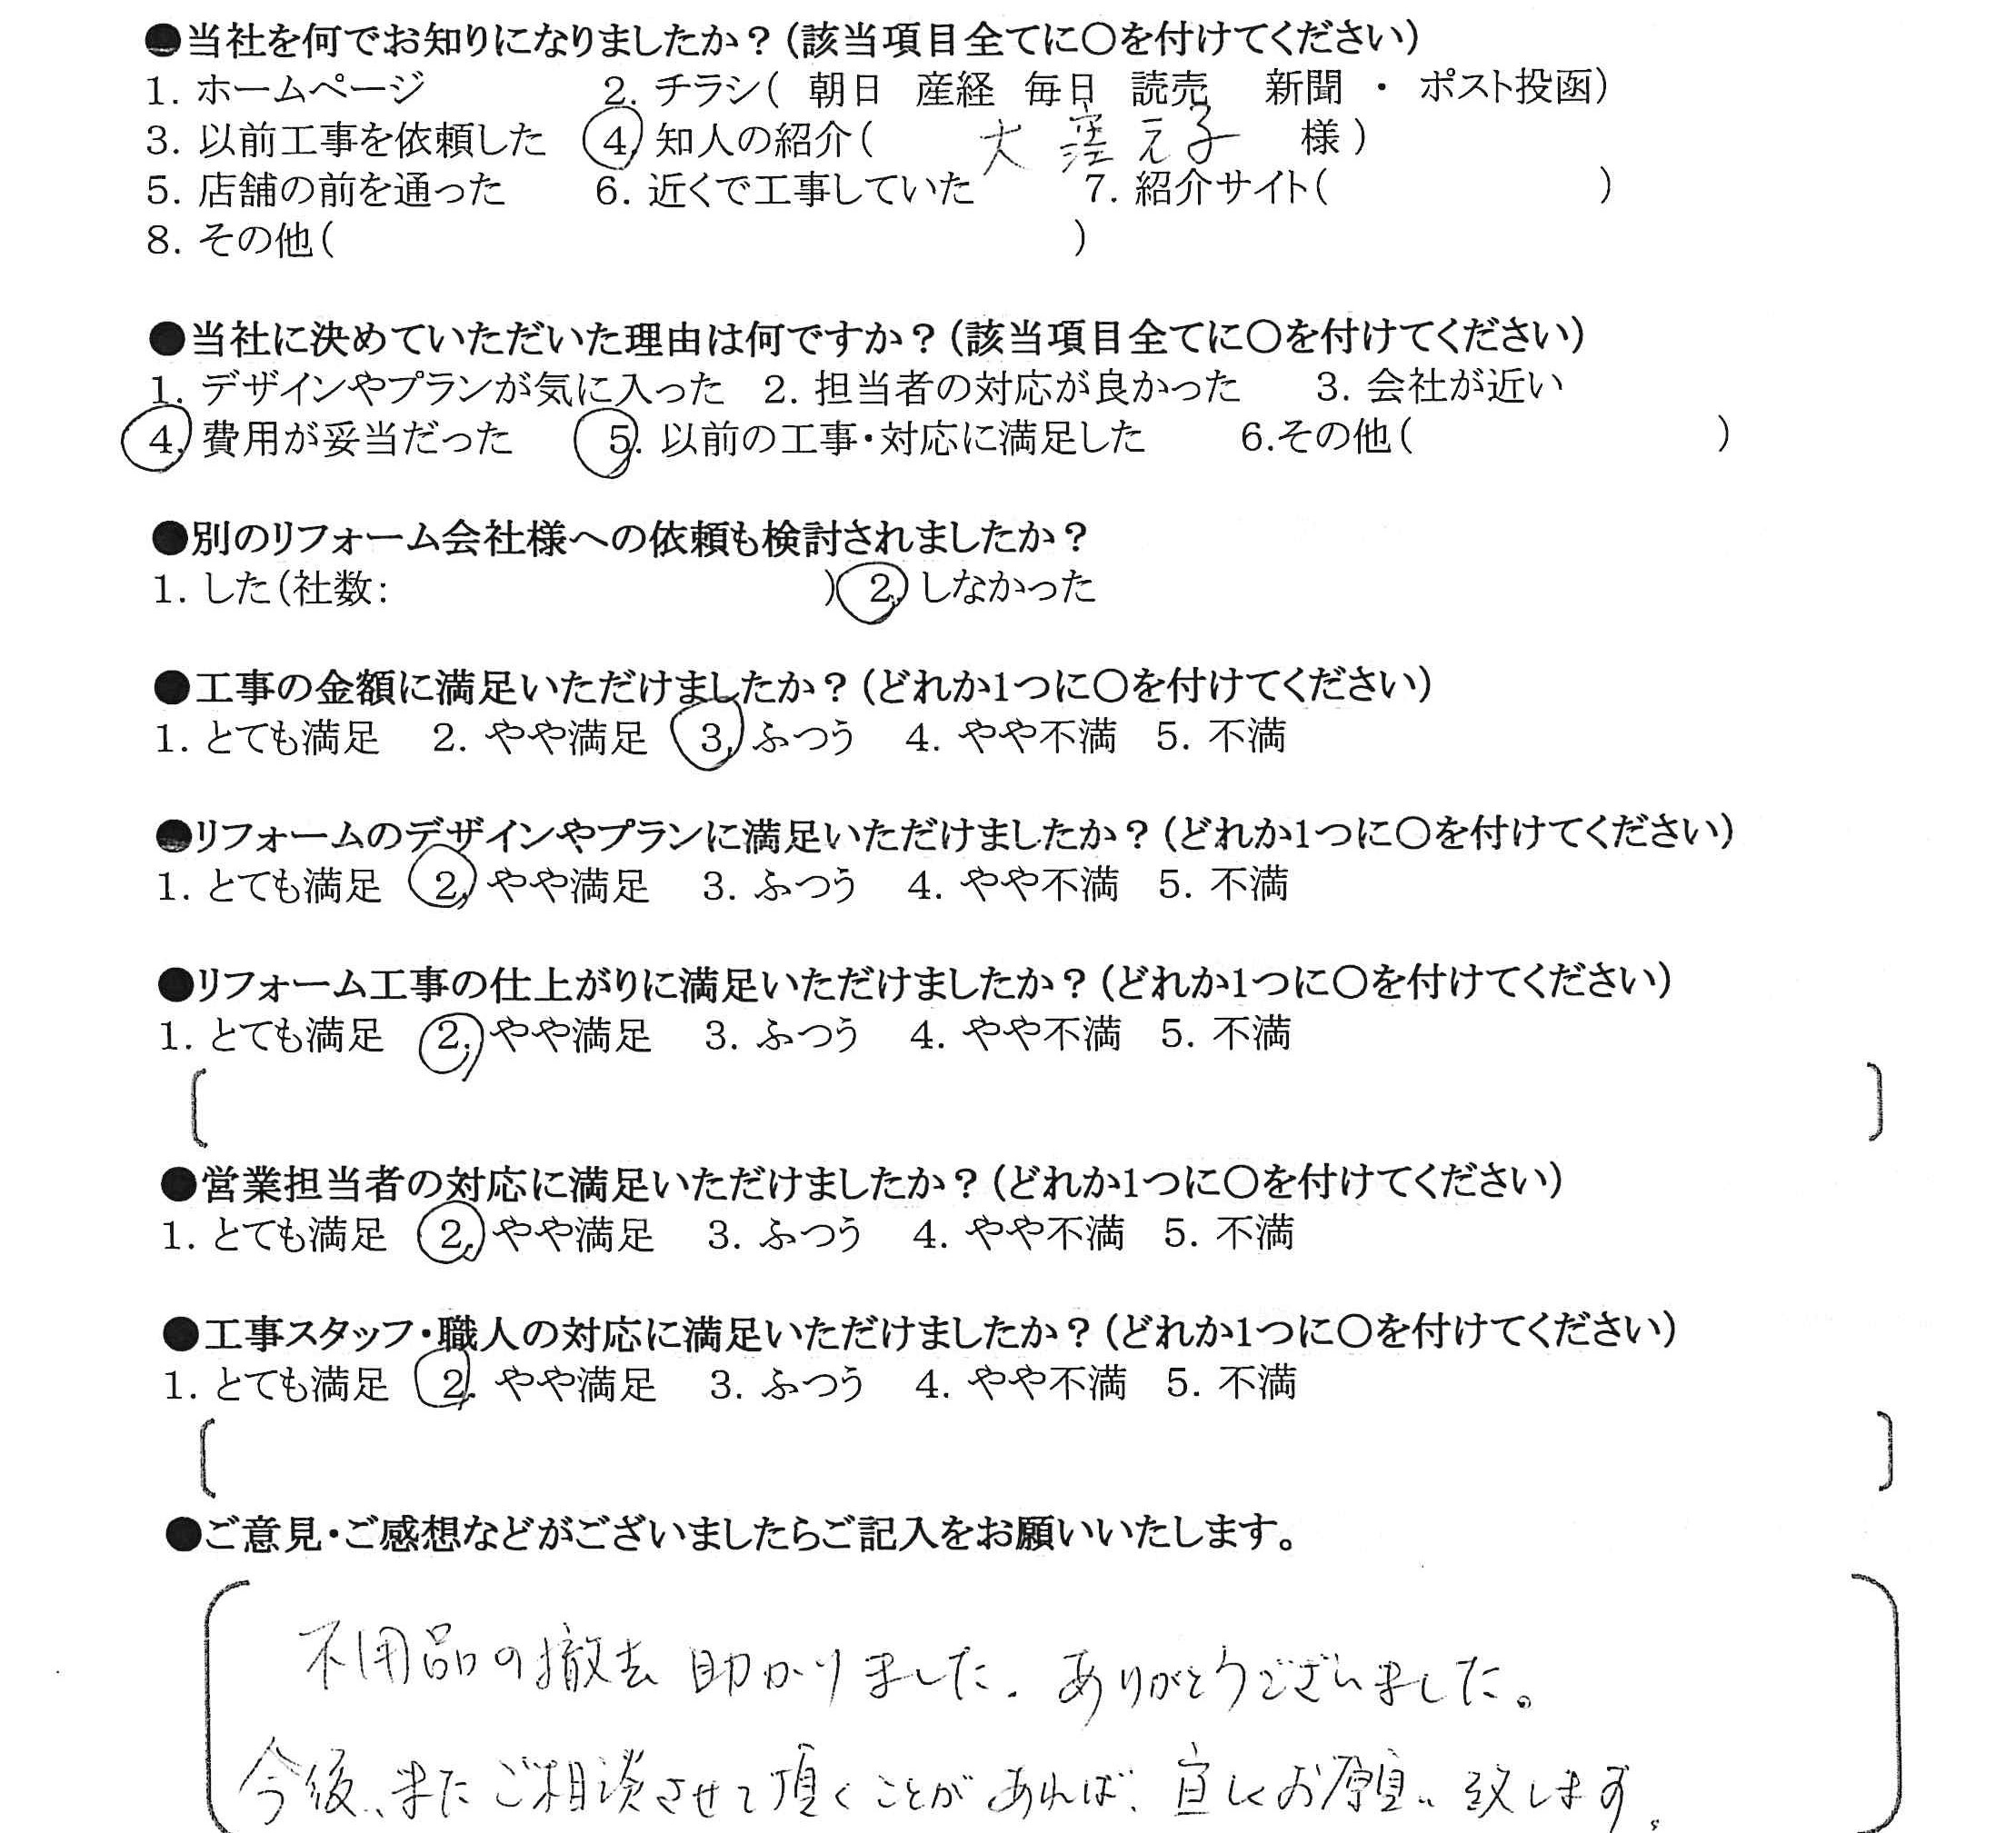 ●当社を何でお知りになりましたか？（該当項目全てに○を付けてください）
1. ホームページ 2. チラシ（ 朝日 産経 毎日 読売 新聞 ・ ポスト投函）
3. 以前工事を依頼した 4. 知人の紹介（ 大窪え子 様）
5. 店舗の前を通った 6. 近くで工事していた 7. 紹介サイト（ ）
8. その他（ ）
●当社に決めていただいた理由は何ですか？（該当項目全てに○を付けてください）
1. デザインやプランが気に入った 2. 担当者の対応が良かった 3. 会社が近い
4. 費用が妥当だった 5. 以前の工事・対応に満足した 6.その他（ ）
●別のリフォーム会社様への依頼も検討されましたか？
1. した（社数： ） 2. しなかった
●工事の金額に満足いただけましたか？（どれか1つに○を付けてください）
1. とても満足 2. やや満足 3. ふつう 4. やや不満 5. 不満
●リフォームのデザインやプランに満足いただけましたか？（どれか1つに○を付けてください）
1. とても満足 2. やや満足 3. ふつう 4. やや不満 5. 不満
●リフォーム工事の仕上がりに満足いただけましたか？（どれか1つに○を付けてください）
1. とても満足 2. やや満足 3. ふつう 4. やや不満 5. 不満
●営業担当者の対応に満足いただけましたか？（どれか1つに○を付けてください）
1. とても満足 2. やや満足 3. ふつう 4. やや不満 5. 不満
●工事スタッフ・職人の対応に満足いただけましたか？（どれか1つに○を付けてください）
1. とても満足 2. やや満足 3. ふつう 4. やや不満 5. 不満
●ご意見・ご感想などがございましたらご記入をお願いいたします。
不用品の撤去 助かりました。ありがとうございました。
今後、またご相談させて頂くことがあれば、宜しくお願い致します。